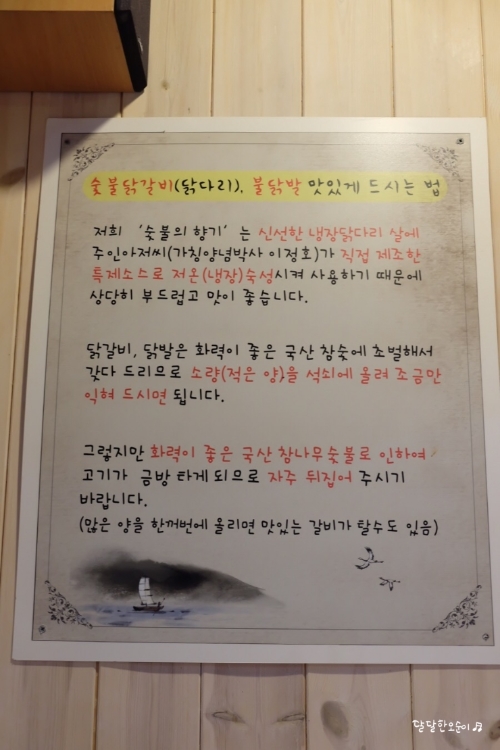 숯불닭갈비(닭다리), 불닭발 맛있게 드시는 법
저희 '숯불의 향기' 는 신선한 냉장닭다리 살에
주인아저씨(가칭양념박사 이정호)가 직접 제조한
특제소스로 저온(냉장)숙성시켜 사용하기 때문에
상당히 부드럽고 맛이 좋습니다.
닭갈비, 닭발은 화력이 좋은 국산 참숯에 초벌해서
갖다 드리므로 소량(적은 양)을 석쇠에 올려 조금만
익혀 드시면 됩니다.
그렇지만 화력이 좋은 국산 참나무숯불로 인하여
고기가 금방 타게 되므로 자주 뒤집어 주시기
바랍니다.
(많은 양을 한꺼번에 올리면 맛있는 갈비가 탈수도 있음)
달달한오순이♬